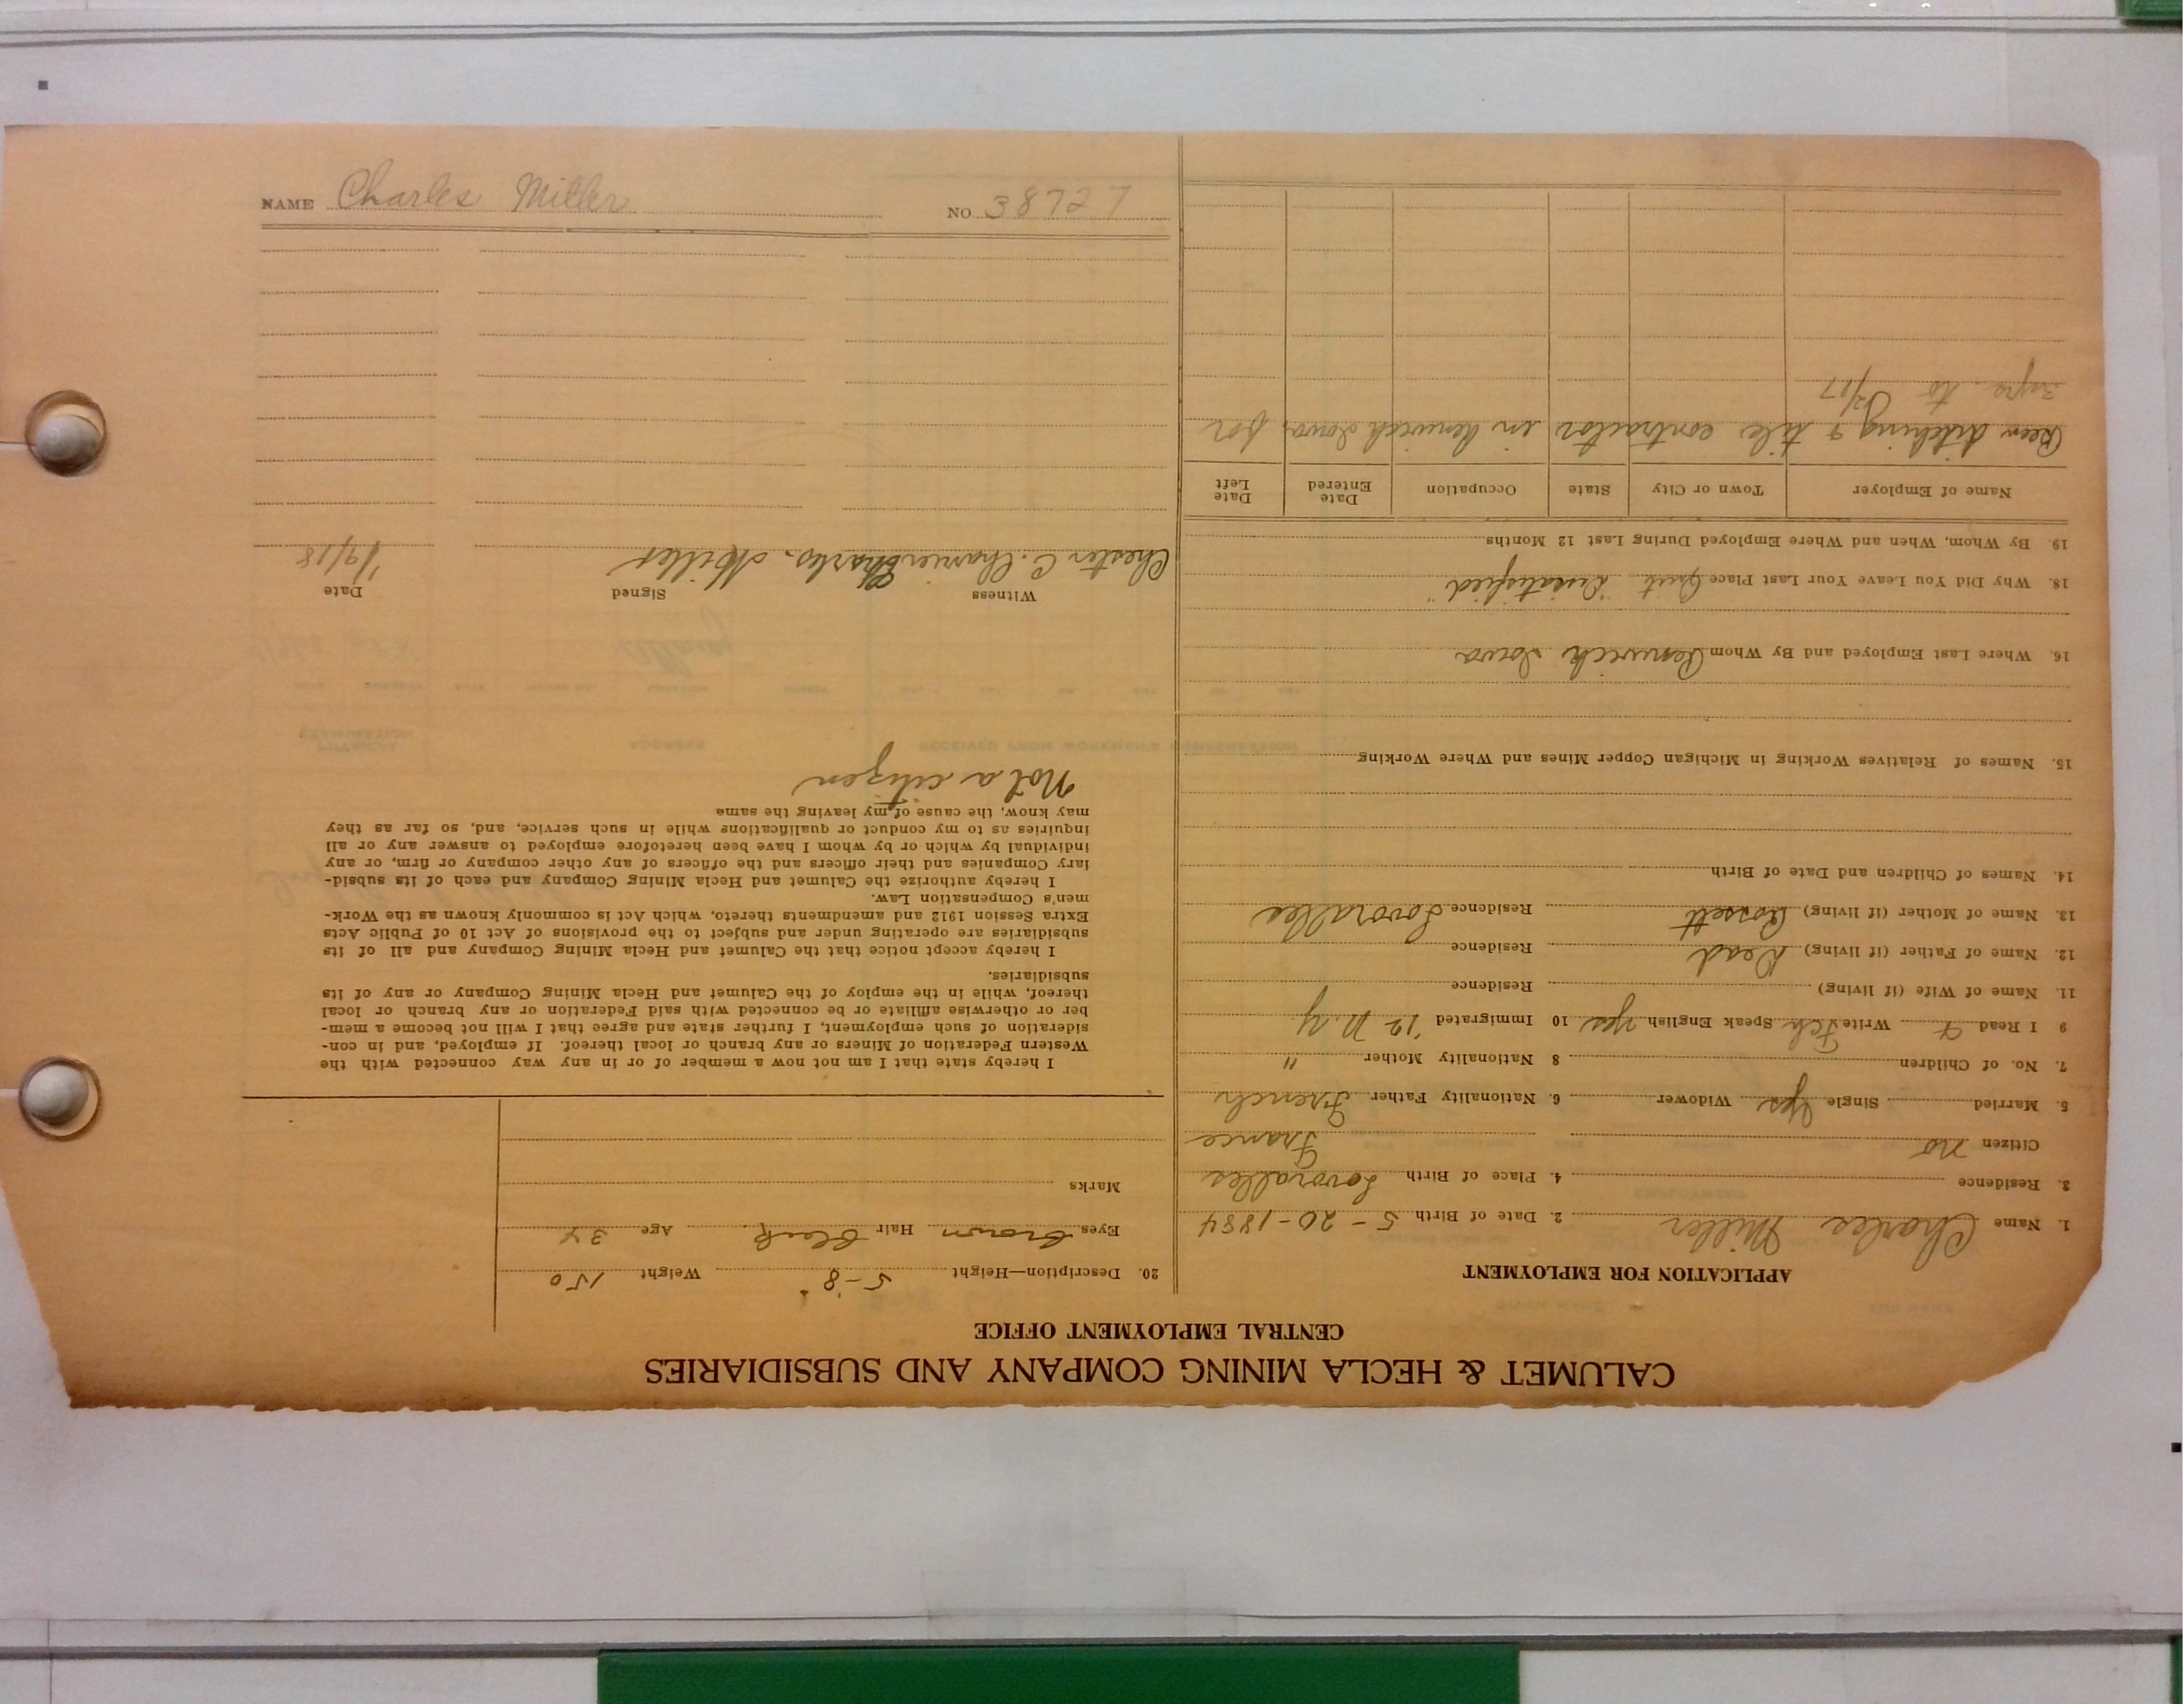 CALUMET & HECLA MINING COMPANY AND SUBSIDIARIES
CENTRAL EMPLOYMENT OFFICE
APPLICATION FOR EMPLOYMENT
1. Name Charles Miller 2. Date of Birth 5-20-1884
3. Residence 4. Place of Birth
Citizen no France
5. Married Single yes Widower 6. Nationality Father French
7. No. of Children 8 Nationality Mother "
9 I Read F Write Fch Speak English yes 10 Immigrated '12 N.Y
11. Name of Wife (if living) Residence
12. Name of Father (if living) Dead Residence
13. Name of Mother (if living) Residence
14. Names of Children and Date of Birth
15. Names of Relatives Working in Michigan Copper Mines and Where Working
16. Where Last Employed and By Whom Renwick Iowa
18. Why Did You Leave Your Last Place Quit "Dissatisfied"
19. By Whom, When and Where Employed During Last 12 Months
Name of Employer Town or City State Occupation Date Entered Date Left
Been ditching & tile contractor in Renwick Iowa, for
3 yrs. to 12/17
20. Description—Height 5-8" Weight 150
Eyes brown Hair black Age 34
Marks
I hereby state that I am not now a member of or in any way connected with the
Western Federation of Miners or any branch or local thereof. If employed, and in con-
sideration of such employment, I further state and agree that I will not become a mem-
ber or otherwise affiliate or be connected with said Federation or any branch or local
thereof, while in the employ of the Calumet and Hecla Mining Company or any of its
subsidiaries.
I hereby accept notice that the Calumet and Hecla Mining Company and all of its
subsidiaries are operating under and subject to the provisions of Act 10 of Public Acts
Extra Session 1912 and amendments thereto, which Act is commonly known as the Work-
men's Compensation Law.
I hereby authorize the Calumet and Hecla Mining Company and each of its subsid-
iary Companies and their officers and the officers of any other company or firm, or any
individual by which or by whom I have been heretofore employed to answer any or all
inquiries as to my conduct or qualifications while in such service, and, so far as they
may know, the cause of my leaving the same
Not a citizen
Witness Signed Date
Chester C. Charles Miller 1/9/18
NAME Charles Miller NO 38727